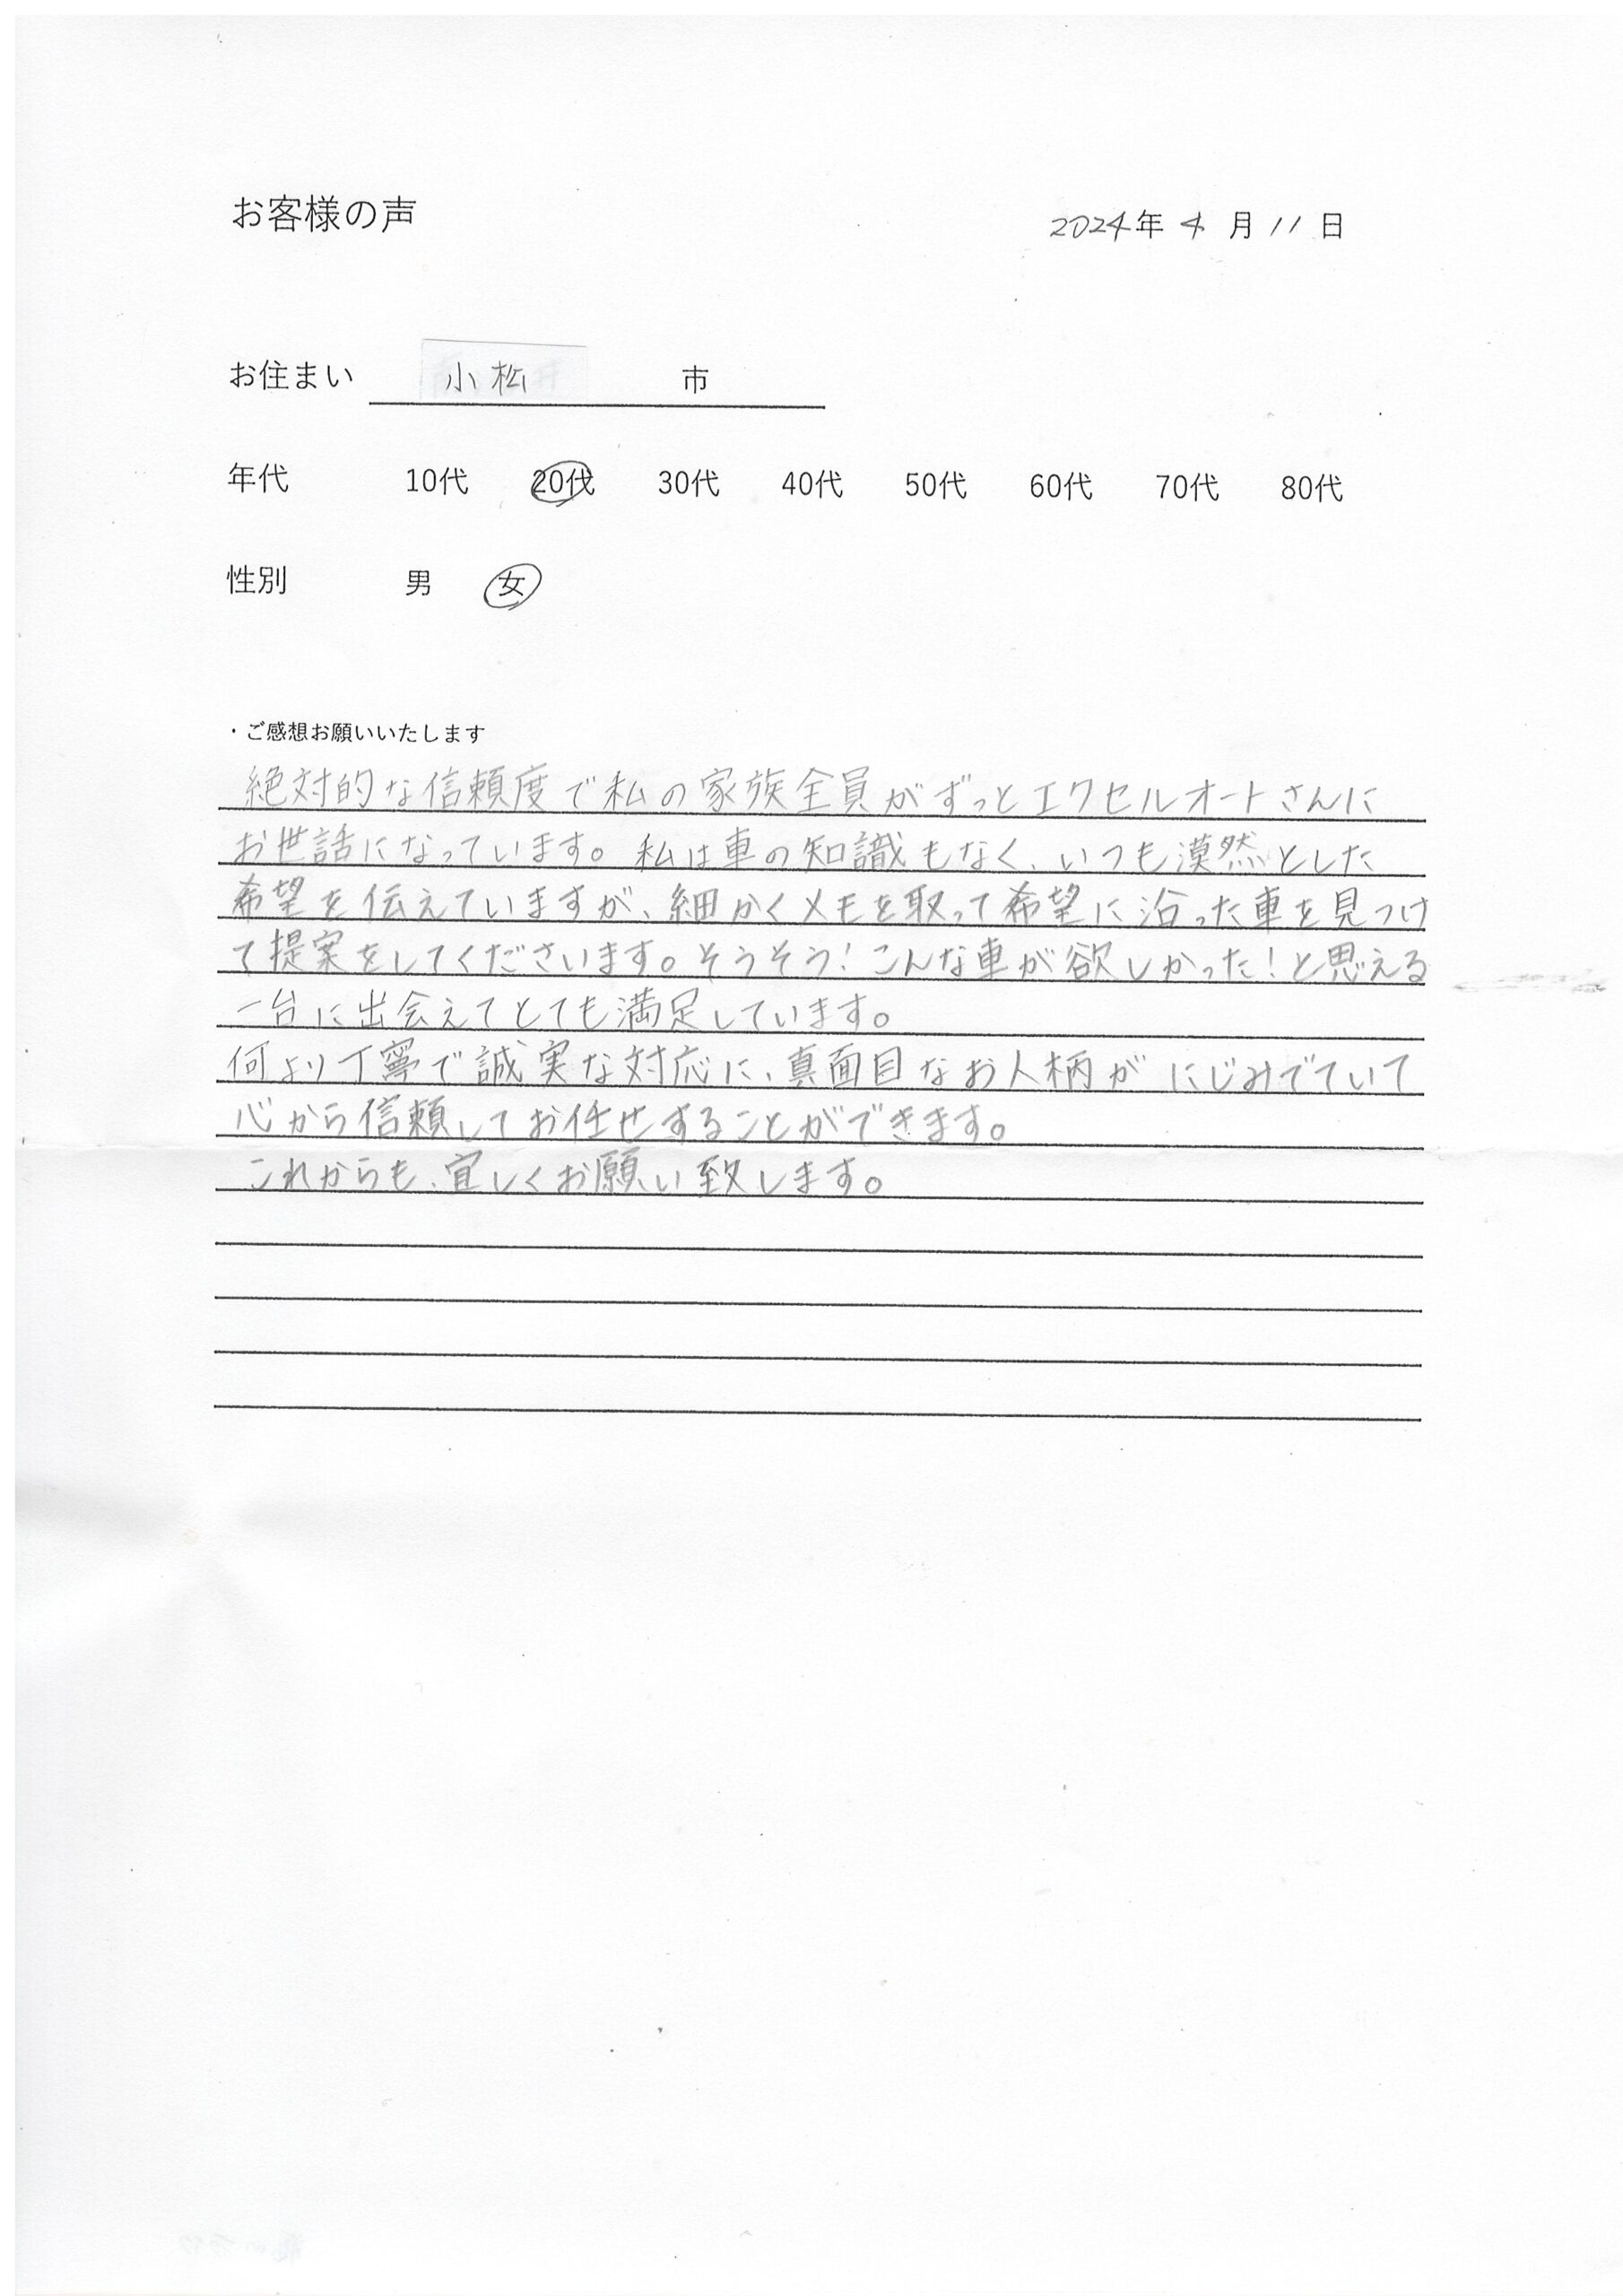 お客様の声
2024年 4 月 11 日
お住まい 小松 市
年代 10代 20代 30代 40代 50代 60代 70代 80代
性別 男 女
・ご感想お願いいたします
絶対的な信頼度で私の家族全員がずっとエクセルオートさんに
お世話になっています。私は車の知識もなく、いつも漠然とした
希望を伝えていますが、細かくメモを取って希望に沿った車を見つけ
て提案をしてくださいます。そうそう!こんな車が欲しかった!と思える
一台に出会えてとても満足しています。
何より丁寧で誠実な対応に、真面目なお人柄がにじみでていて
心から信頼してお任せすることができます。
これからも、宜しくお願い致します。